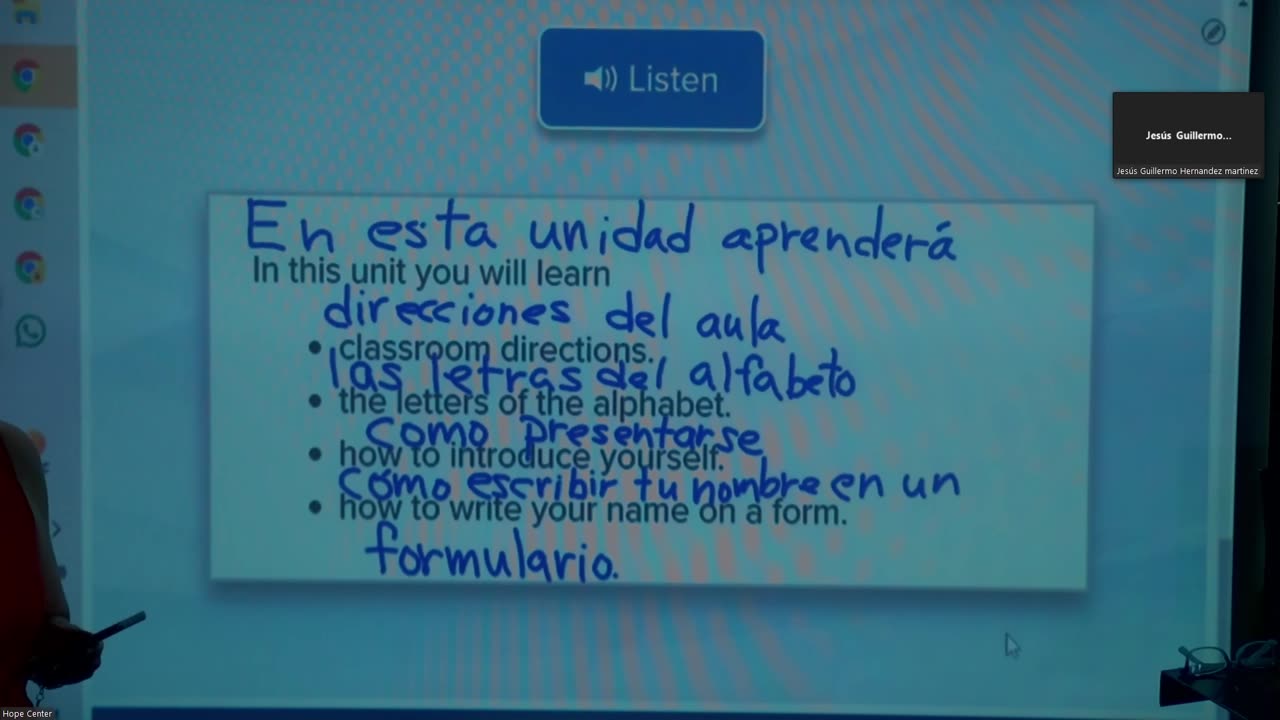 Listen
Jesús Guillermo...
Jesús Guillermo Hernandez martinez
En esta unidad aprenderá
In this unit you will learn
direcciones del aula
• classroom directions.
las letras del alfabeto
• the letters of the alphabet.
como presentarse
• how to introduce yourself.
cómo escribir tu nombre en un
• how to write your name on a form.
formulario.
Hope Center